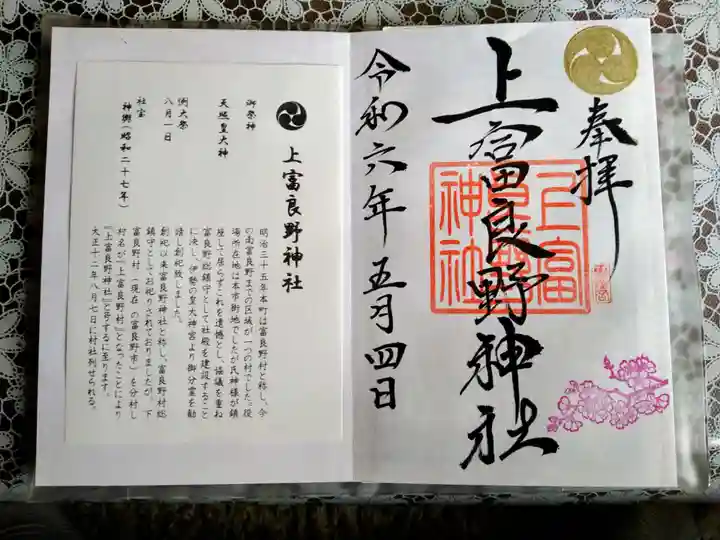 奉拝
上富良野神社
上富
良野
神社
令和六年五月四日
上富良野神社
御祭神
天照皇大神
例大祭
八月一日
社宝
神輿(昭和二十七年)
明治三十五年本町は富良野村と称し、今
の南富良野までの区域が一つの村でした。役
場所在地は本市街地でしたが氏神様が鎮
座して居らずこれを遺憾とし、協議を重ね
富良野総鎮守として社殿を建設すること
に決し、伊勢の皇大神宮より御分霊を勧
請し創祀致しました。
創祀以来富良野神社と称し、富良野村総
鎮守としてお祀りされておりましたが、下
富良野村(現在の富良野市)を分村し
村名が「上富良野村」となったことにより
『上富良野神社』と号するに至ります。
大正十二年八月七日に村社列せられる。